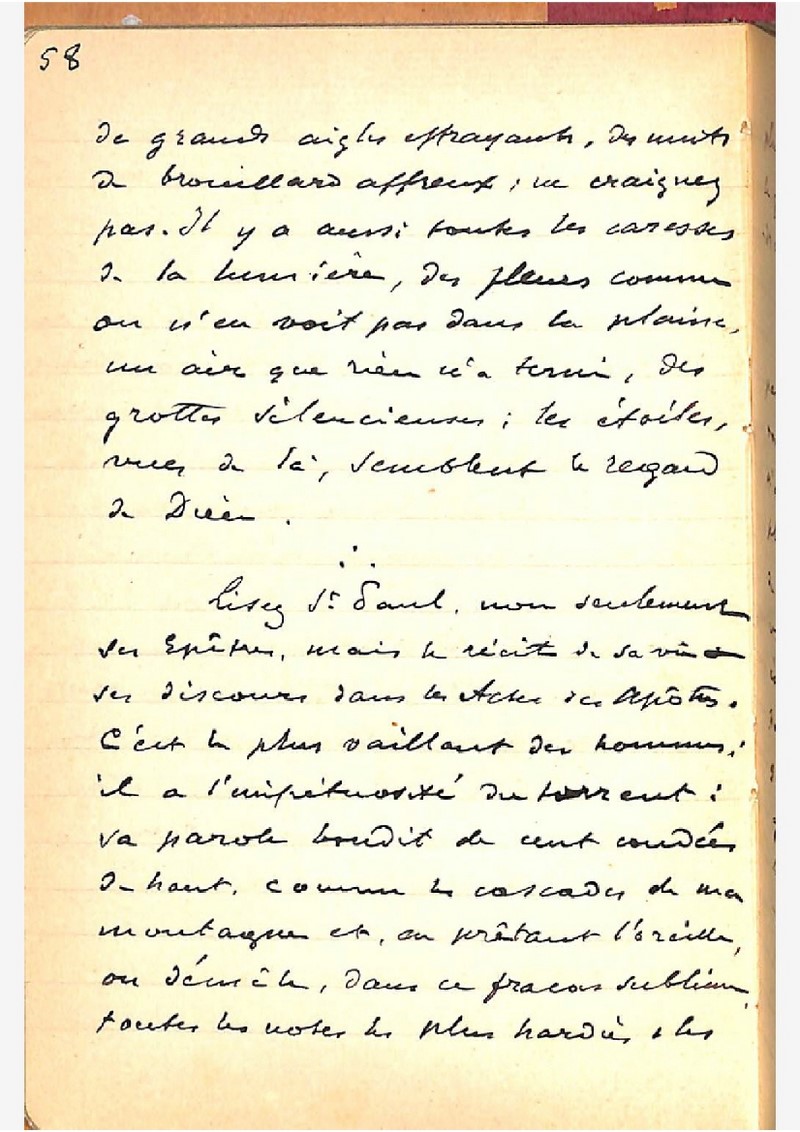 58
de grands aigles effrayants, des nuits
de brouillard affreux ; ne craignez
pas. Il y a aussi toutes les caresses
de la lumière, des fleurs comme
on n'en voit pas dans la plaine,
un air que rien n'a terni, des
grottes silencieuses ; les étoiles,
vues de là, semblent le regard
de Dieu.
Lisez St Paul, non seulement
ses Epîtres, mais le récit de sa vie et
ses discours dans les Actes des Apôtres.
C'est le plus vaillant des hommes ;
il a l'impétuosité du torrent :
sa parole bondit de cent coudées
de haut, comme les cascades de ma
montagne et, en prêtant l'oreille,
on démêle, dans ce fracas sublime,
toutes les notes les plus hardies & les